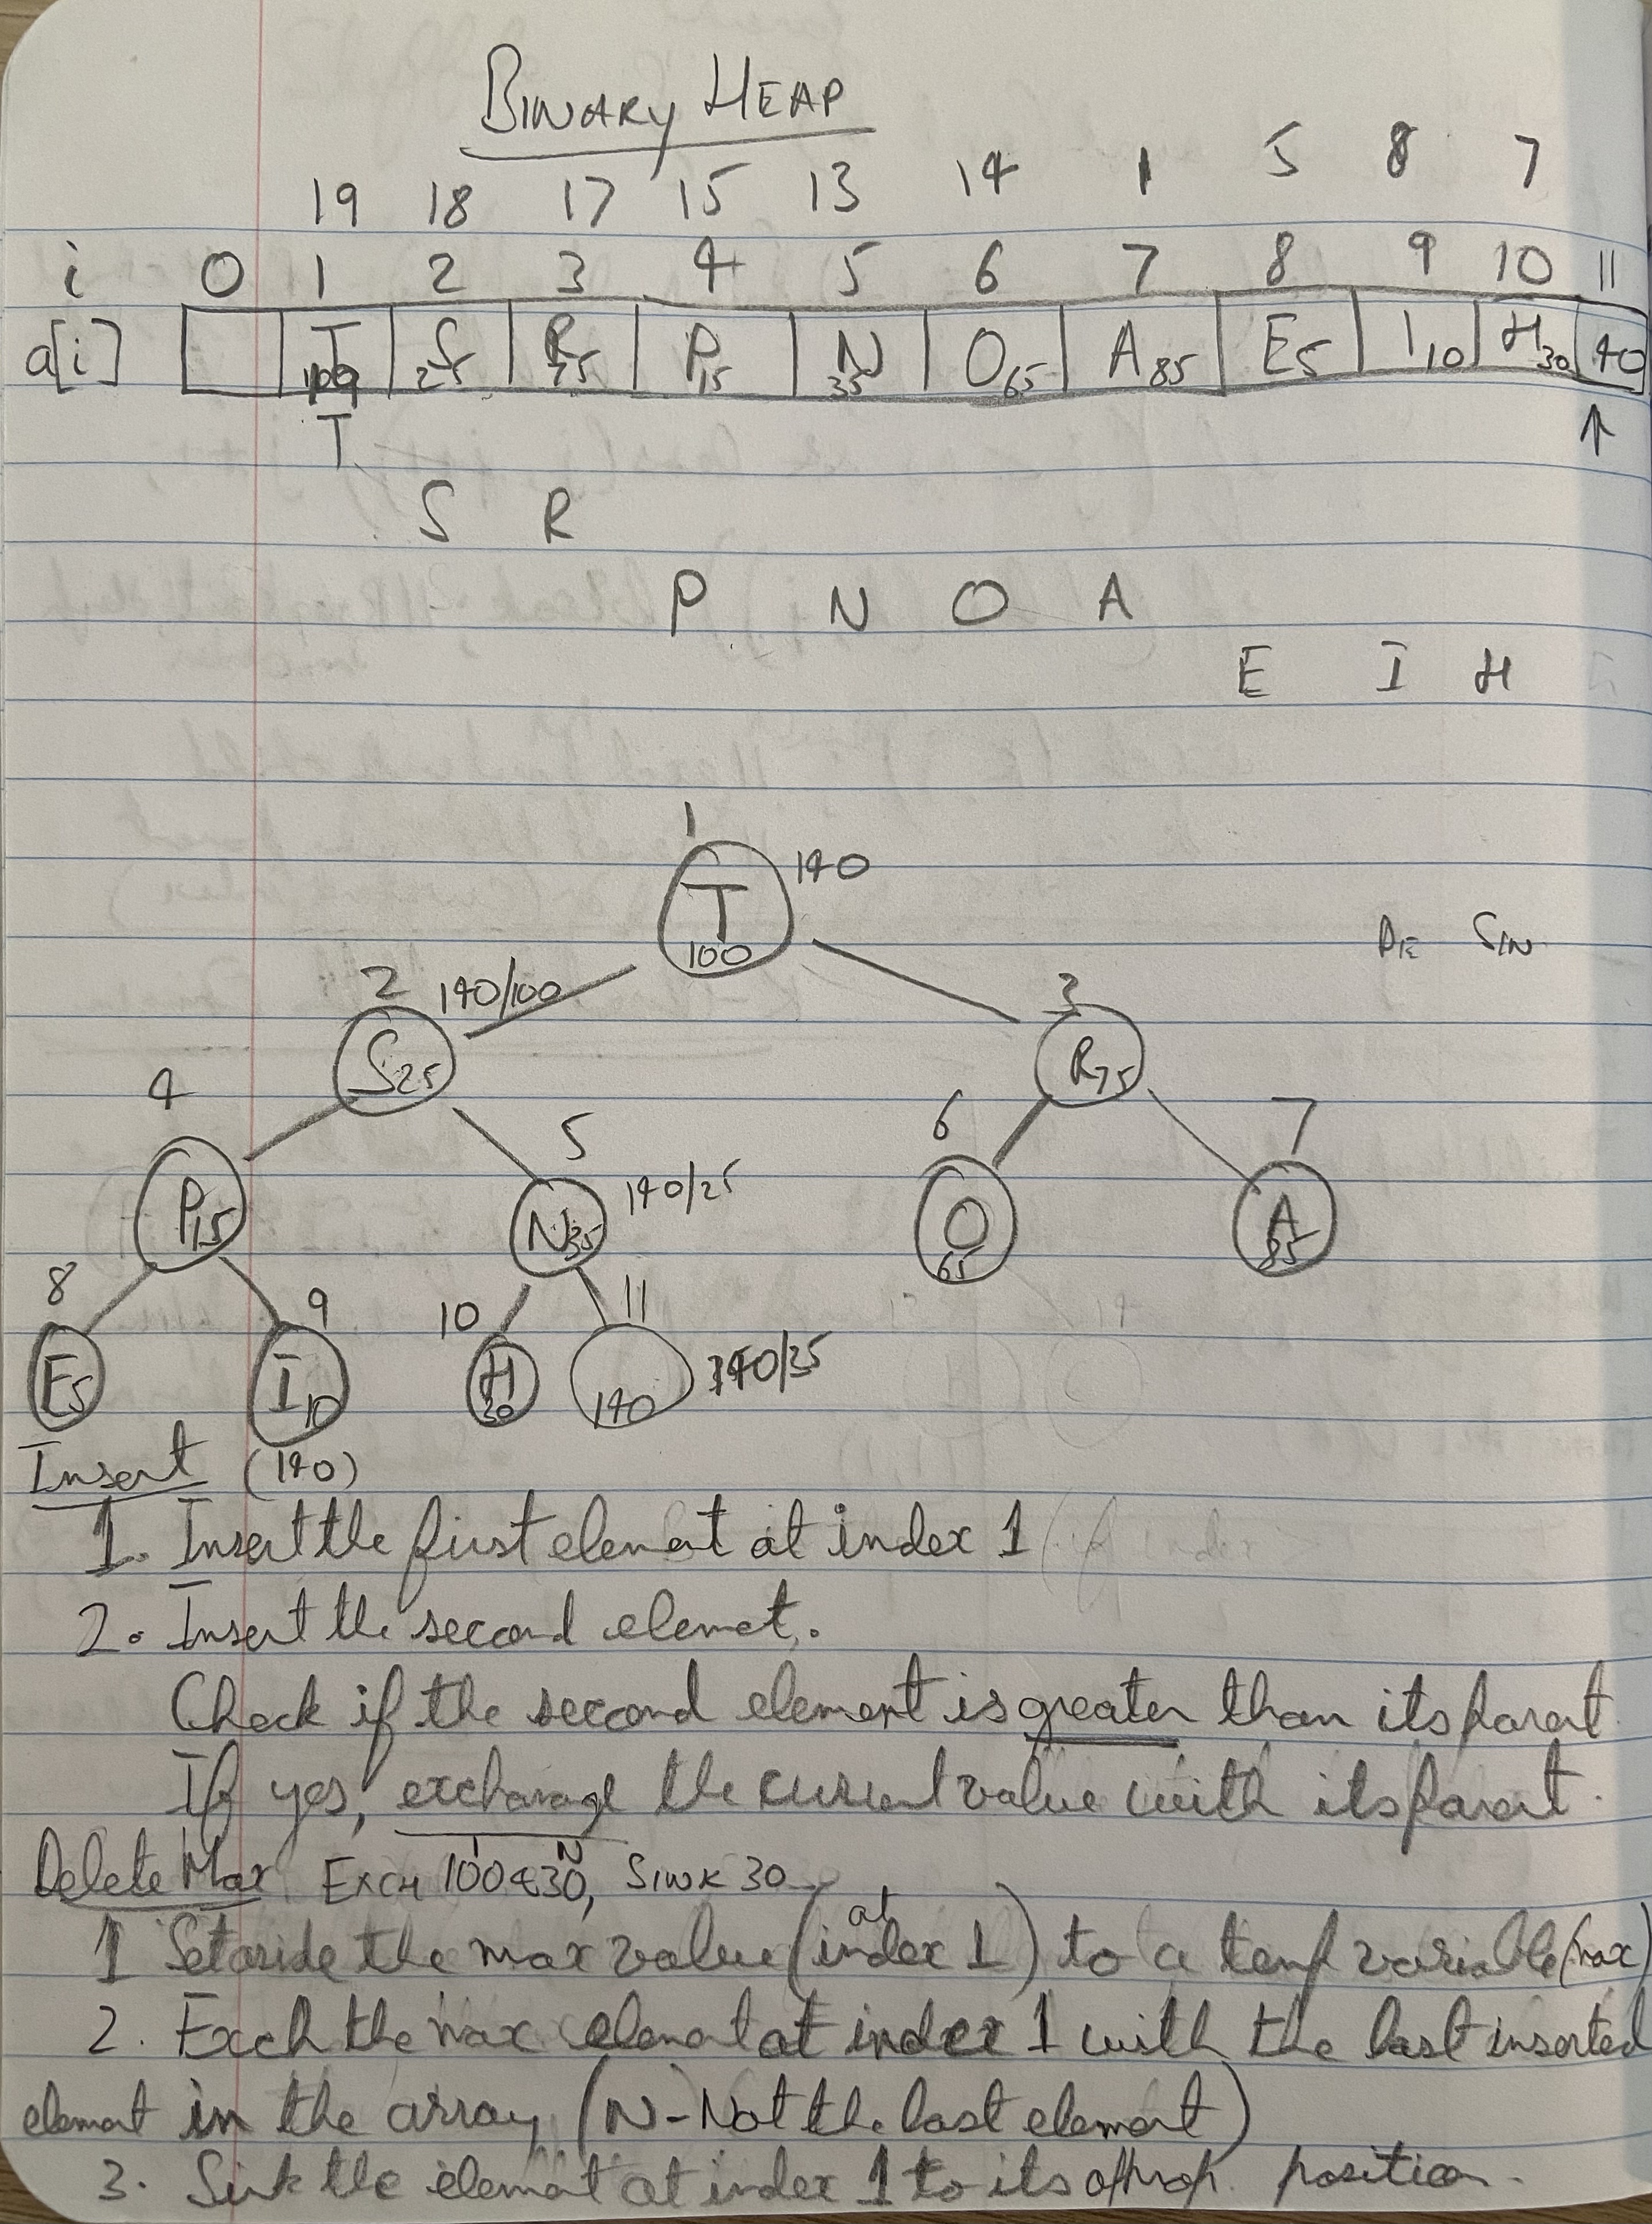 BINARY HEAP
19 18 17 15 13 14 1 5 8 7
i 0 1 2 3 4 5 6 7 8 9 10 11
a[i] T S25 R75 P15 N35 O65 A85 E5 I10 H30 40
T
S R
P N O A
E I H
1
T 140
100
2 140/100
3
S25 R75
4 5 6 7
P15 N35 140/25 O65 A85
8 9 10 11
E5 I10 H30 140 140/35
Insert (140)
1. Insert the first element at index 1
2. Insert the second elemet.
Check if the second element is greater than its parent
If yes, exchange the current value with its parent.
Delete Max EXCH 100 & 30, SINK 30
1 N
1 Set aside the max value (at index 1) to a temp variable (max)
2. Exch the max element at index 1 with the last inserted
element in the array (N - Not the last element)
3. Sink the element at index 1 to its approp. position.